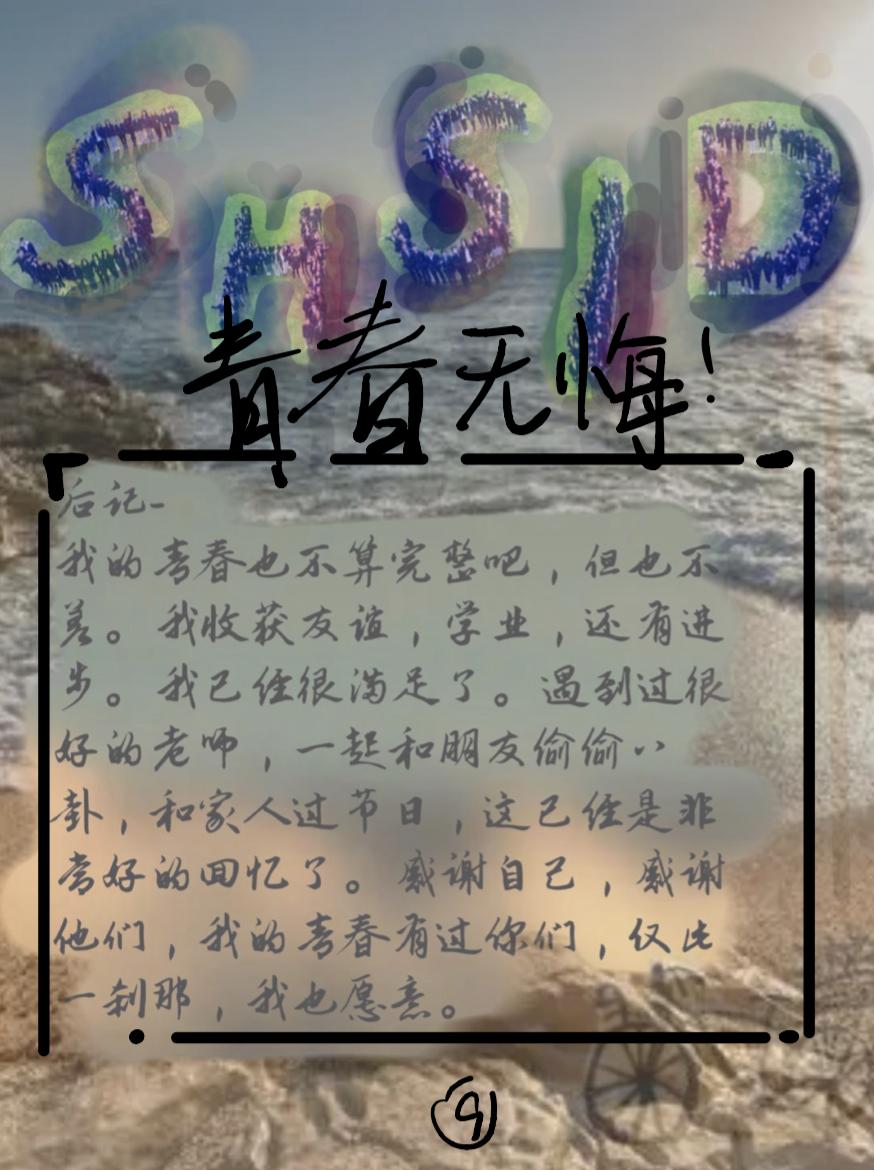 SHSID
青春无悔!
后记-
我的青春也不算完整吧，但也不
差。我收获友谊，学业，还有进
步。我已经很满足了。遇到过很
好的老师，一起和朋友偷偷八
卦，和家人过节日，这已经是非
常好的回忆了。感谢自己，感谢
他们，我的青春有过你们，仅此
一刹那，我也愿意。
9